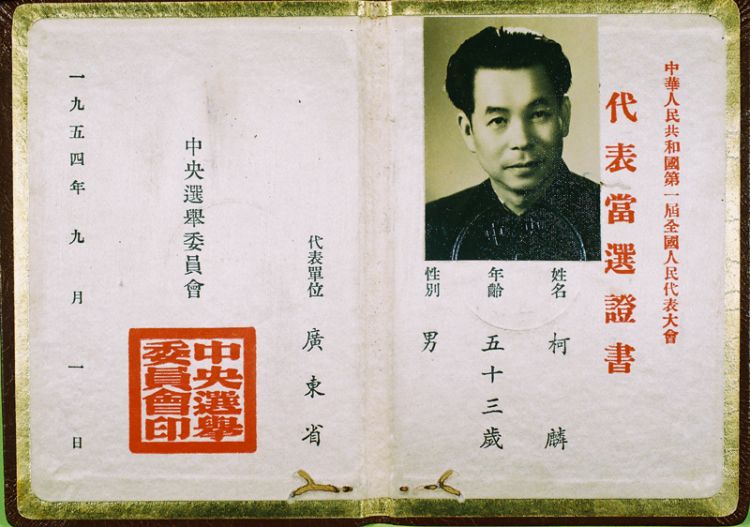 中華人民共和國第一屆全國人民代表大會
代表當選證書
姓名 柯麟
年齡 五十三歲
性別 男
代表單位 廣東省
中央選舉委員會
中央選舉委員會印
一九五四年九月一日